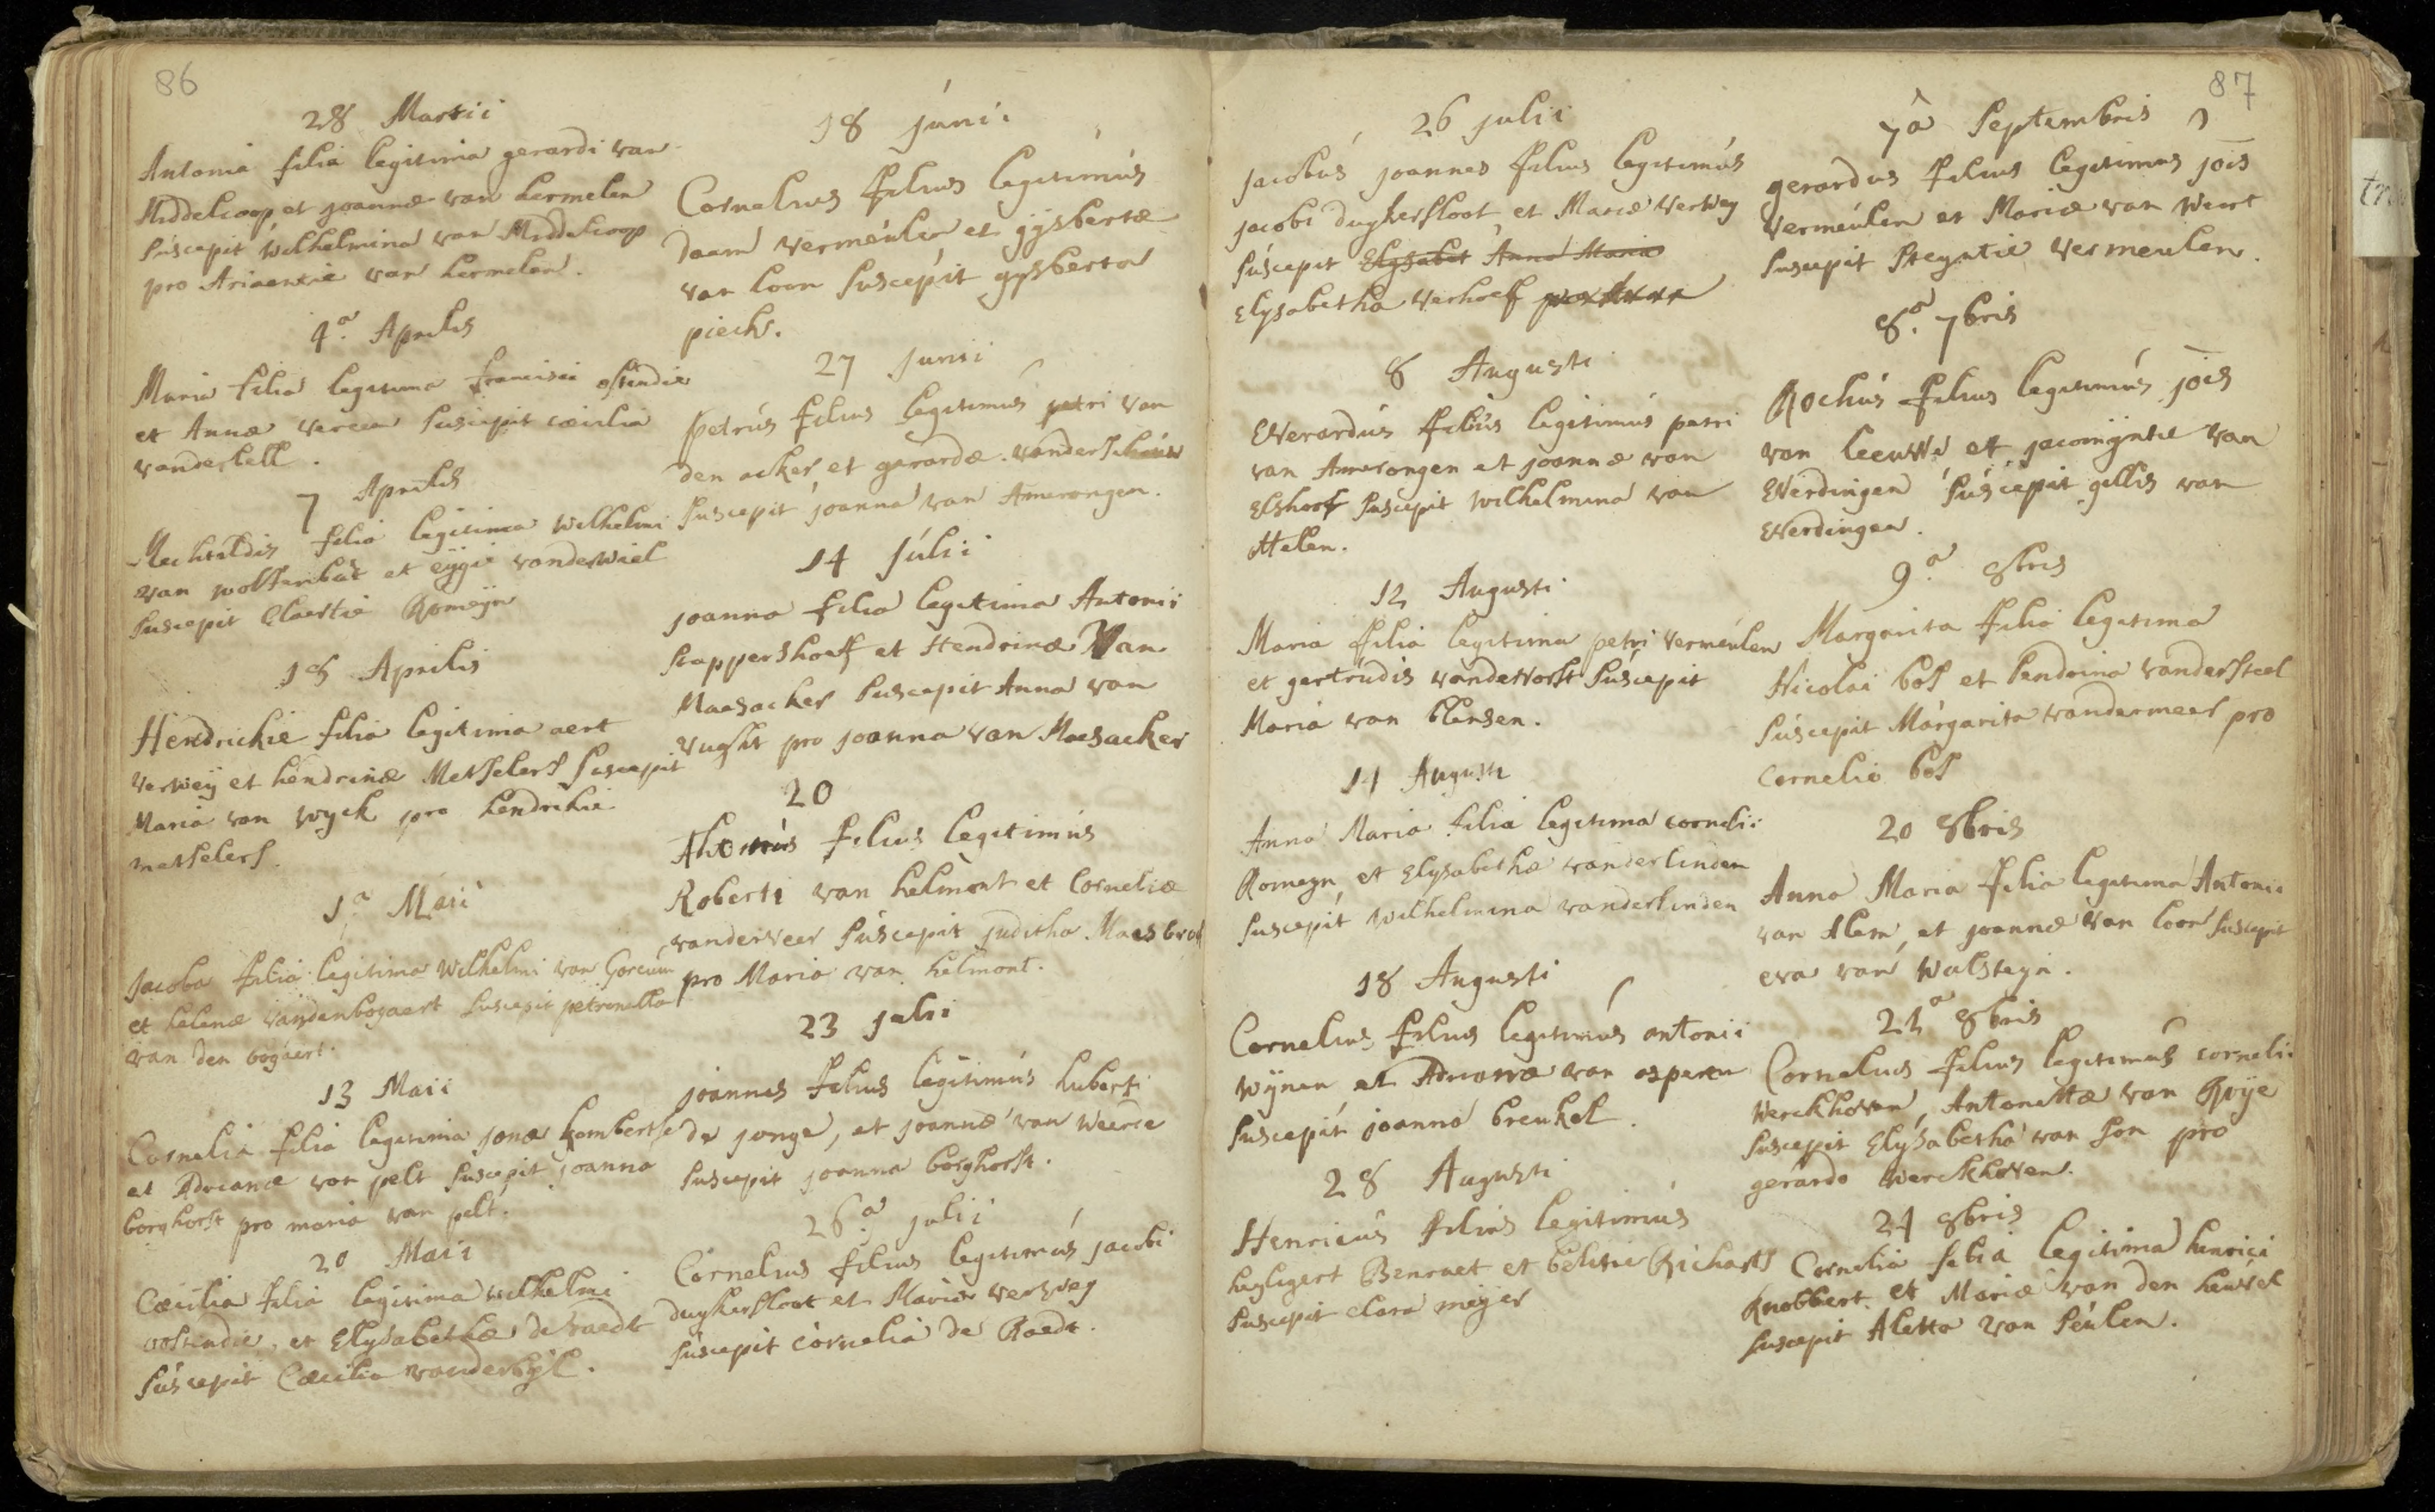 86
28 Martii
Antonia filia legitima gerardi van
Middelcoop et joannæ van hermelen
suscepit wilhelmina van Middelcoop
pro Ariaentie van hermelen.
4.a Aprilis
Maria filia legitima francisci ostendie
et Annæ suscepit cæcilia
vanderlell.
7 Aprilis
Mechtildis filia legitima wilhelmi
van wolfenbut et eygie vanderwiel
suscepit Claertie Romeijn
18 Aprilis
Hendrickie filia legitima aert
verweij et hendrinæ Metselers suscepit
Maria van wyck pro hendrikie
metselers.
1.a Maii
Jacoba filia legitima wilhelmi van Gorcum
et helenæ vandenbogaert suscepit petronella
van den bogaert.
13 Maii
Cornelia filia legitima jonæ
et Adrianæ van pelt suscepit joanna
borghorst pro maria van pelt.
20 Maii
Cæcilia filia legitima wilhelmi
oostendie, et Elysabethæ de raedt
suscepit Cæcilia vanderbijl.
18 junii
Cornelius filius legitimus
daam vermeulen et gijsbertæ
van loon suscepit gysberta
piecks.
27 junii
petrus filius legitimus petri van
den acker et gerardæ vanderschuur
suscepit joanna van Amerongen.
14 Julii
joanna filia legitima Antonii
scappershoef et Hendrinæ Van
Maesacker suscepit Anna van
vught pro joanna van Maesacker
20
filius legitimus
Roberti van helmont et Corneliæ
vanderveer suscepit juditha
pro Maria van helmont.
23 julii
joannes filius legitimus huberti
de jonge, et joannæ van weerce
suscepit joanna borghorst.
26.a julii
Cornelius filius legitimus jacobi
duykersloot et Mariæ verweg
suscepit cornelia de Raedt.
87
26 julii
jacobus joannes filius legitimus
jacobi duykersloot et Mariæ verweg
suscepit Elysabet Anna Maria
Elysabetha verhoef
8 Augusti
Everardus filius legitimus petri
van Amerongen et joannæ van
Elshoof suscepit wilhelmina van
Attelen.
12 Augusti
Maria filia legitima petri vermeulen
et gertrudis vandervorst suscepit
Maria van
14 Augusti
Anna Maria filia legitima cornelii
Romeyn, et Elysabethæ vanderlinden
suscepit wilhelmina vanderlinden
18 Augusti
Cornelius filius legitimus antonii
wijnen et Adrianæ van asperen
suscepit joanna breukel.
28 Augusti
Henricus filius legitimus
et belitie Richarts
suscepit clara meijer
7a septembris
gerardus filius legitimus jois
vermeulen et Mariæ van weert
suscepit Steyntie vermeulen.
8.a 7bris
Rochus filius legitimus jois
van leeuwe et jacomijntie van
Everdingen suscepit gillis van
Everdingen.
9.a 8bris
Margarita filia legitima
Nicolai bos et hendrina vandersteel
suscepit Margarita vandermeer pro
Cornelio bos
20 8bris
Anna Maria filia legitima Antonii
van Alem, et joannæ van loon suscepit
eva van walsteyn.
21a 8bris
Cornelius filius legitimus cornelii
werckhoven, Antonettæ van Rije
suscepit Elysabetha van son pro
gerardo werckhoven.
24 8bris
Cornelia filia legitima henrici
knobbert et Mariæ van den heuvel
suscepit Aletta van seulen.